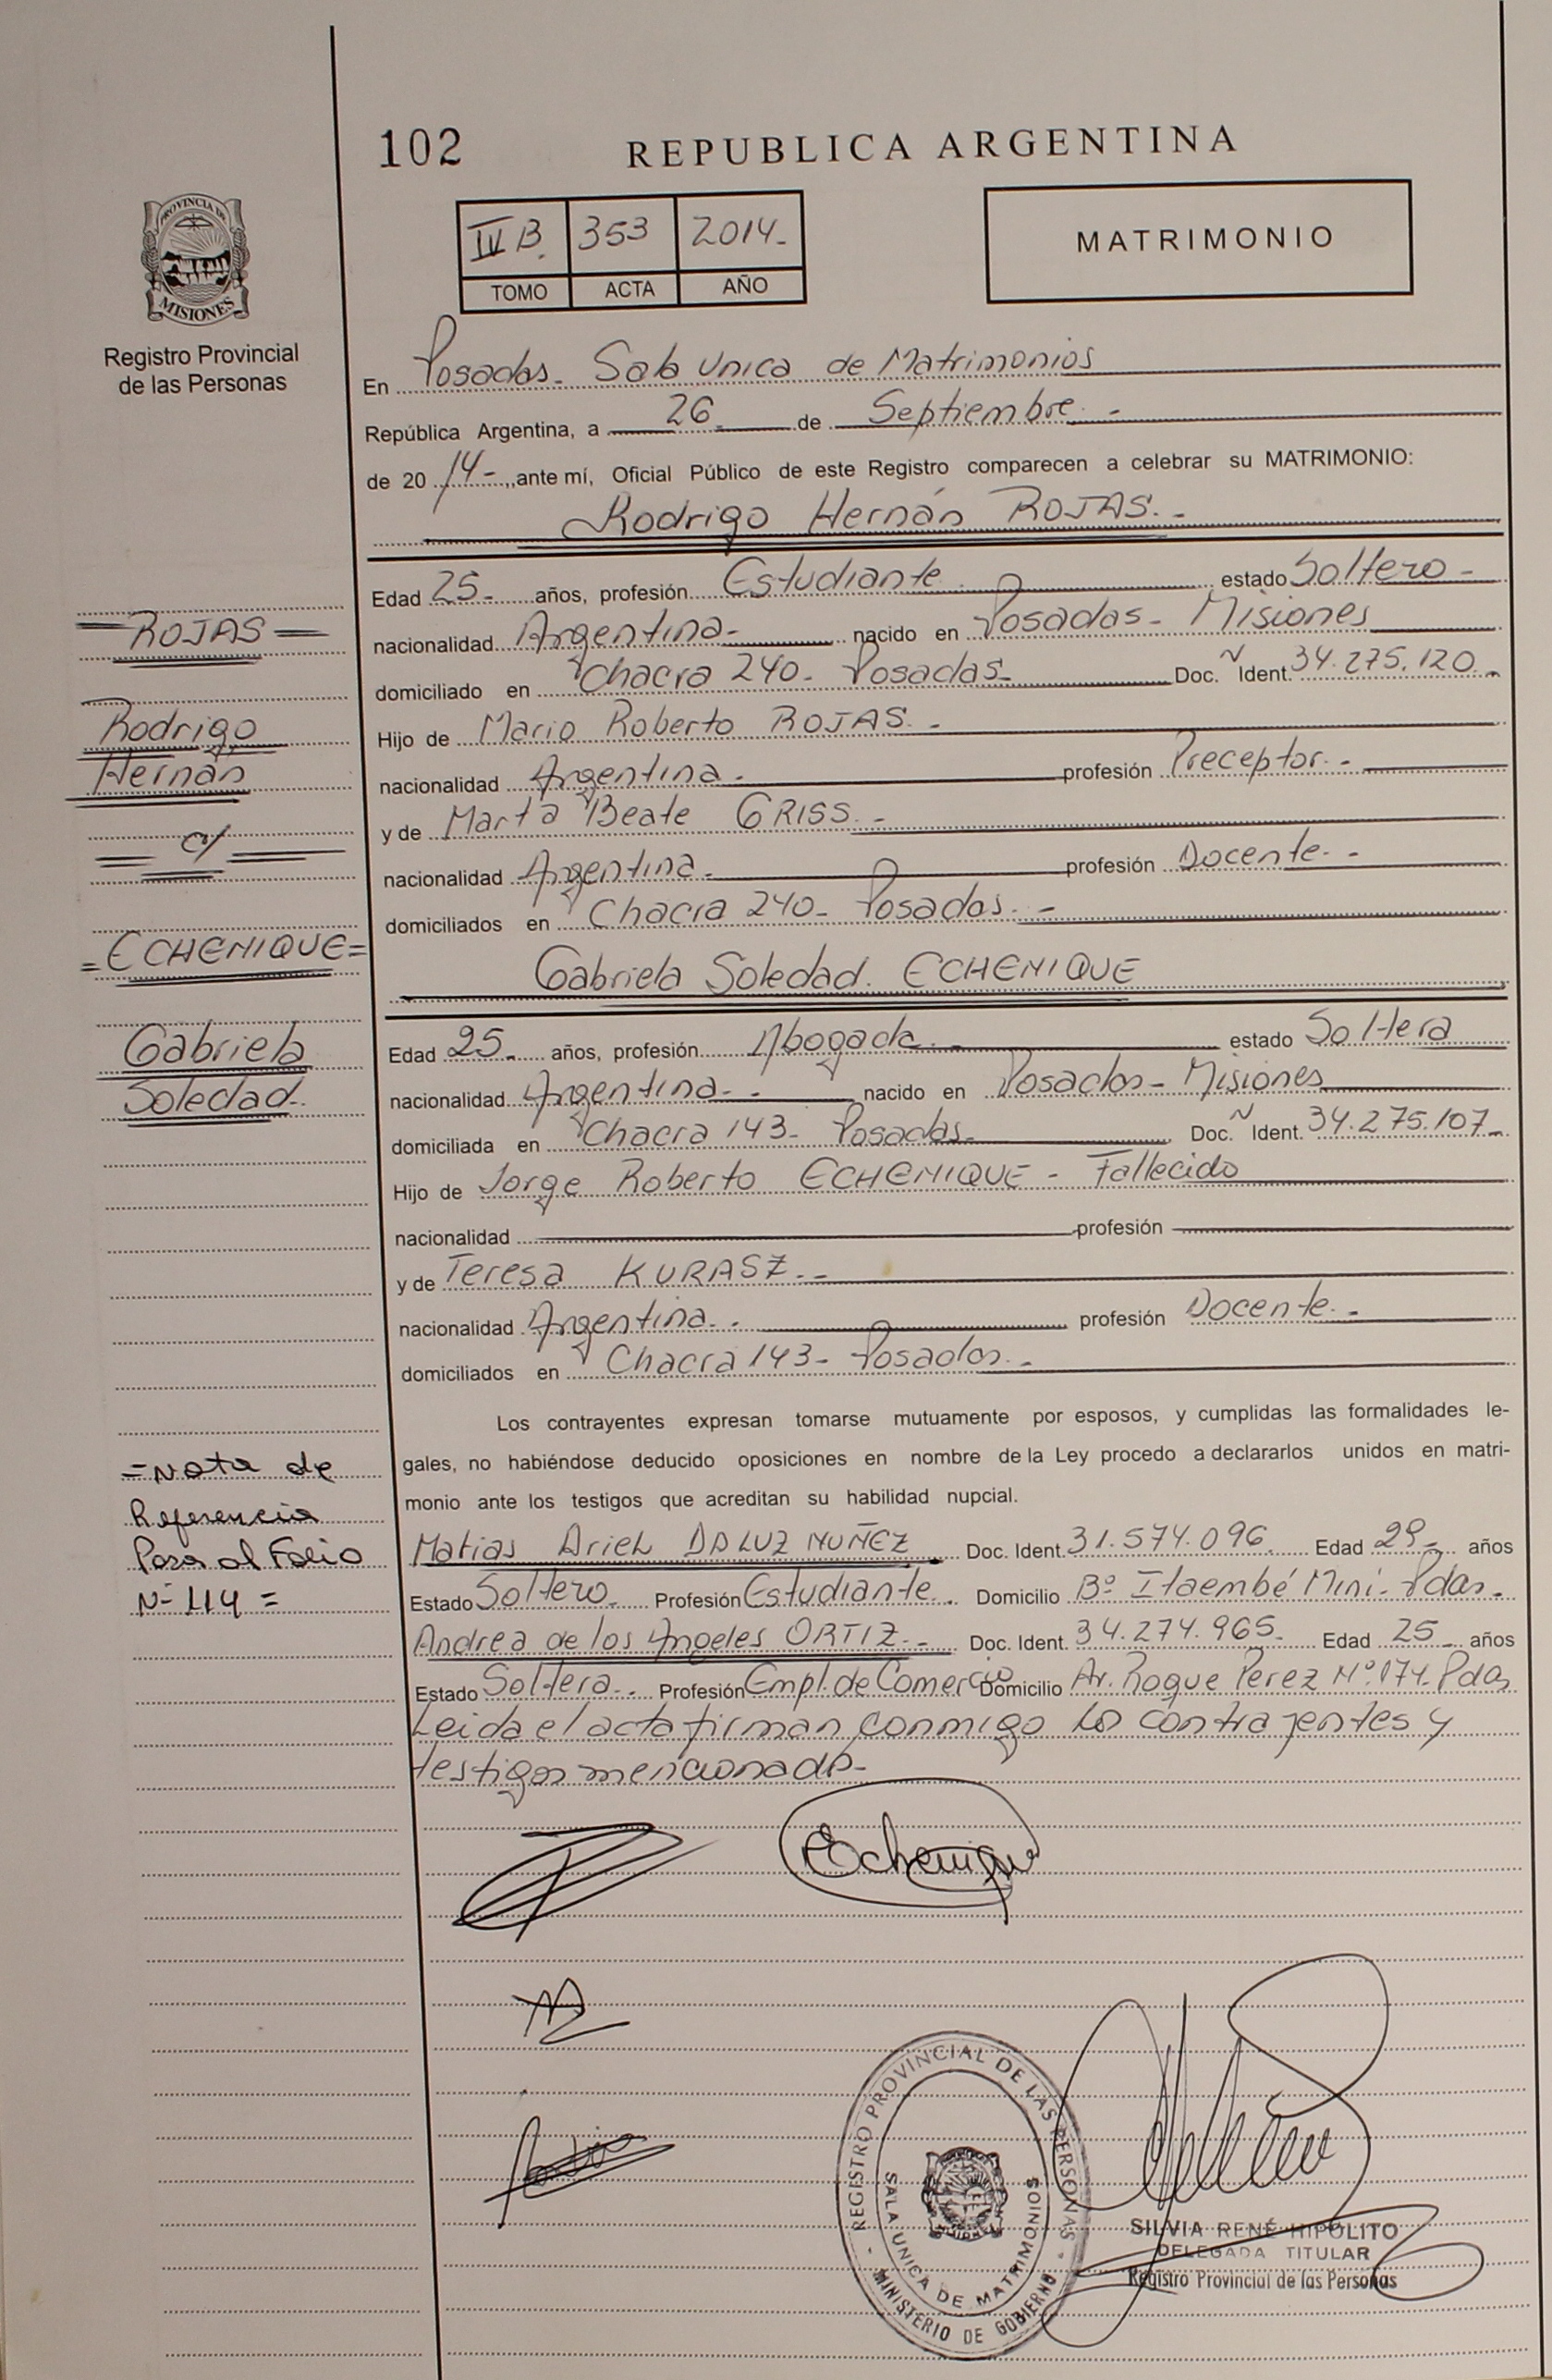 102
REPUBLICA ARGENTINA
PROVINCIA DE
MISIONES
Registro Provincial
de las Personas
353 2014-
TOMO ACTA AÑO
MATRIMONIO
En Posadas- Sala Unica de Matrimonios
República Argentina, a 26 de Septiembre.-
de 2014- ante mí, Oficial Público de este Registro comparecen a celebrar su MATRIMONIO:
Rodrigo Hernán ROJAS.-
Edad 25- años, profesión Estudiante. estado Soltero-
nacionalidad Argentina- nacido en Posadas- Misiones
domiciliado en Chacra 240- Posadas- Doc. N Ident. 34.275.120.-
Hijo de Mario Roberto ROJAS.-
nacionalidad Argentina.- profesión Preceptor.-
y de Marta Beate GRISS.-
nacionalidad Argentina.- profesión Docente.-
domiciliados en Chacra 240- Posadas.-
Gabriela Soledad. ECHENIQUE
Edad 25- años, profesión Abogada.- estado Soltera
nacionalidad Argentina.- nacido en Posadas- Misiones
domiciliada en Chacra 143- Posadas- Doc. N Ident. 34.275.107-
Hijo de Jorge Roberto ECHENIQUE - Fallecido
nacionalidad profesión
y de Teresa KURASZ.-
nacionalidad Argentina.- profesión Docente.-
domiciliados en Chacra 143- Posadas.-
Los contrayentes expresan tomarse mutuamente por esposos, y cumplidas las formalidades le-
gales, no habiéndose deducido oposiciones en nombre de la Ley procedo a declararlos unidos en matri-
monio ante los testigos que acreditan su habilidad nupcial.
Matias Ariel DA LUZ NUÑEZ Doc. Ident. 31.574.096. Edad 29- años
Estado Soltero. Profesión Estudiante. Domicilio Bº Itaembé Mini- Pdas.
Andrea de los Angeles ORTIZ.- Doc. Ident. 34.274.965- Edad 25- años
Estado Soltera.. Profesión Empl. de Comercio Domicilio Av. Roque Perez Nº 174- Pdas
Leida el acta firman conmigo los contrayentes y
testigos mencionado-
=ROJAS=
Rodrigo
Hernán
= c/ =
=ECHENIQUE=
Gabriela
Soledad.
=Nota de
Referencia
Pasa al Folio
Nº 114=
Echenique
REGISTRO PROVINCIAL DE LAS PERSONAS
SALA UNICA DE MATRIMONIOS
- MINISTERIO DE GOBIERNO -
SILVIA RENÉ HIPOLITO
DELEGADA TITULAR
Registro Provincial de las Personas